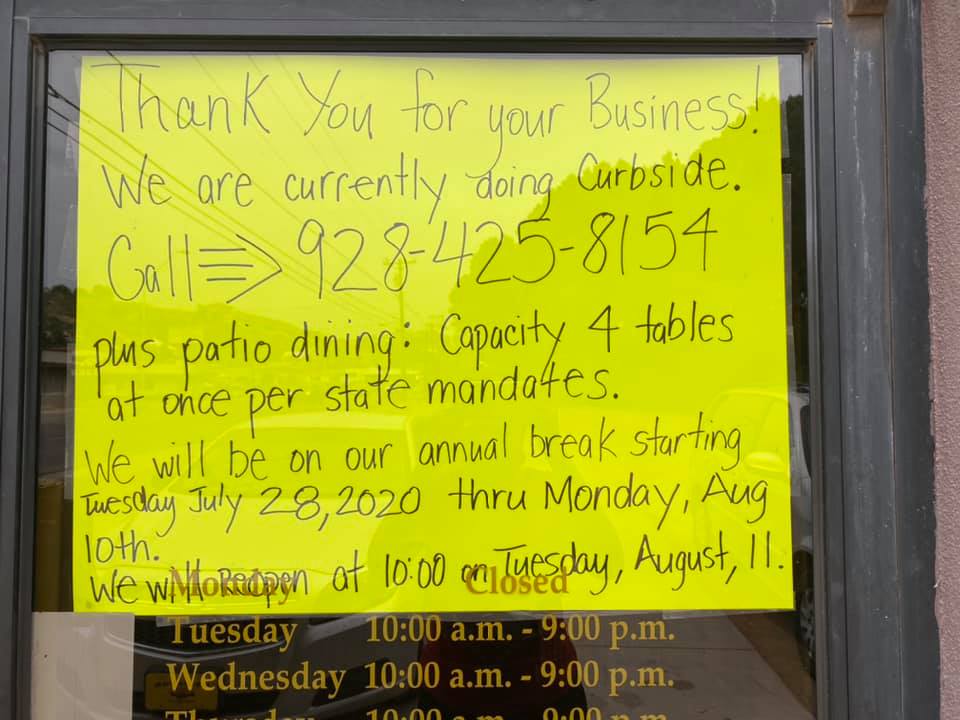 Thank You for your Business!
We are currently doing Curbside.
Call ⇒ 928-425-8154
plus patio dining: Capacity 4 tables
at once per state mandates.
We will be on our annual break starting
Tuesday July 28, 2020 thru Monday, Aug
10th.
We will Reopen at 10:00 on Tuesday, August, 11.
Monday Closed
Tuesday 10:00 a.m. - 9:00 p.m.
Wednesday 10:00 a.m. - 9:00 p.m.
Thursday 10:00 a.m. - 9:00 p.m.